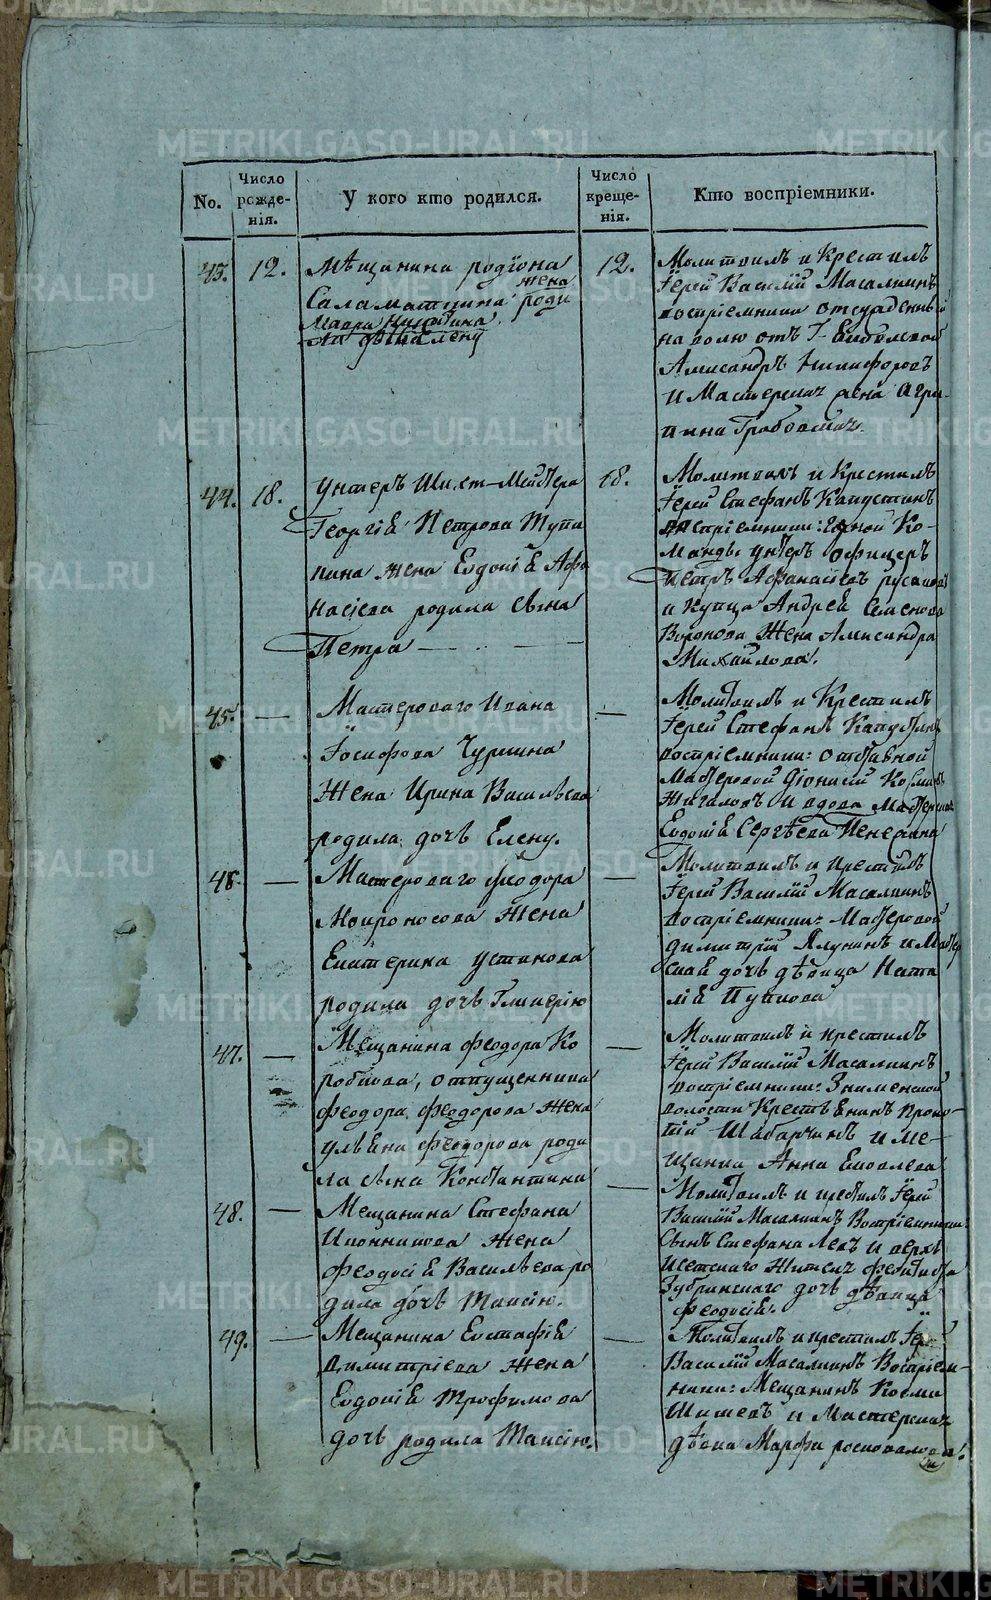 No.
Число рожде-нія.
У кого кто родился.
Число креще-нія.
Кто воспріемники.
43. 12.
Мѣщанина родіона
Саламатина жена роди
Мавра Никитина
ла дочь Елену
12.
Молитвилъ и Крестилъ
Іерей Василій Масалкинъ
воспріемники отсужденный
на волю отъ Г.
Александръ Никифоровъ
и Мастерская жена Агри-
пина
44. 18.
Унтеръ Шихт-Мейстера
Георгія Петрова Тупи
цина жена Евдокія Афа
насіева родила сына
Петра
18.
Молитвилъ и Крестилъ
Іерей Стефанъ Капустинъ
воспріемники: Горной Ко-
манды унтеръ офицеръ
Петръ Афанасіевъ Русановъ
и Купца Андрея Семенова
Воронова Жена Александра
Михайлова.
45. —
Мастероваго Ивана
Іосифова Чуркина
Жена Ирина Васильева
родила дочь Елену.
—
Молитвилъ и Крестилъ
Іерей Стефанъ Капустинъ
воспріемники: отставной
Мастеровой Діонисій Козминъ
Жигаловъ и вдова Мастерская
Евдокія Сергѣева
46. —
Мастероваго Феодора
Мироносова Жена
Екатерина Устинова
родила дочь Гликерію
—
Молитвилъ и крестилъ
Іерей Василій Масалкинъ
воспріемники: Мастеровой
Димитрій Ялунинъ и Мастер
ская дочь дѣвица Ната
лія Пупкова
47. —
Мещанина Феодора Ко
робкова, отпущенника
Феодора Феодорова Жена
Ульяна Феодорова роди
ла сына Константина
—
Молитвилъ и крестилъ
Іерей Василій Масалкинъ
воспріемники: Знаменской
волости Крестьянинъ Проко-
пій Шабарчинъ и ме-
щанка Анна Яковлева
48. —
Мещанина Стефана
Иконникова Жена
Феодосія Васильева ро
дила дочь Таисію.
—
Молитвилъ и крестилъ Іерей
Василій Масалкинъ Воспріемники:
Сынъ Стефана Левъ и верхъ
Исетскаго Жителя
Зубринскаго дочь дѣвица
Феодосія.
49. —
Мещанина Евстафія
Димитріева Жена
Евдокія Трофимова
дочь родила Таисію.
—
Молитвилъ и крестилъ Іерей
Василій Масалкинъ Воспріем-
ники: Мещанинъ Косма
Шишевъ и Мастерская
дѣвка Марфа
METRIKI.GASO-URAL.RU